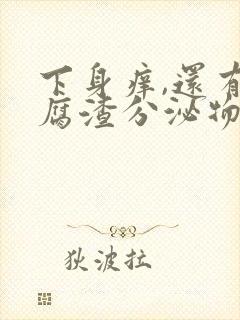 下身痒,還有
腐渣分泌物
狄波拉